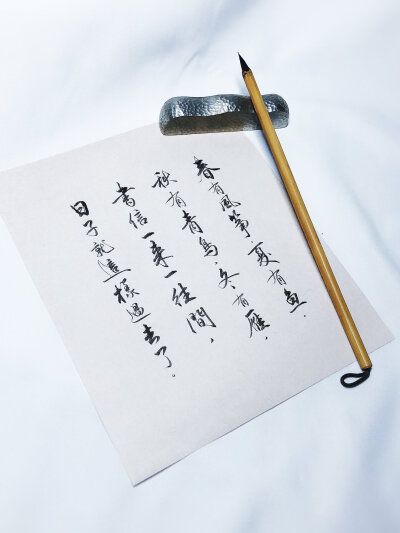 春有風筝夏有魚.
秋有青鳥.冬有雁.
書信一来一往間,
日子就這樣過去了.